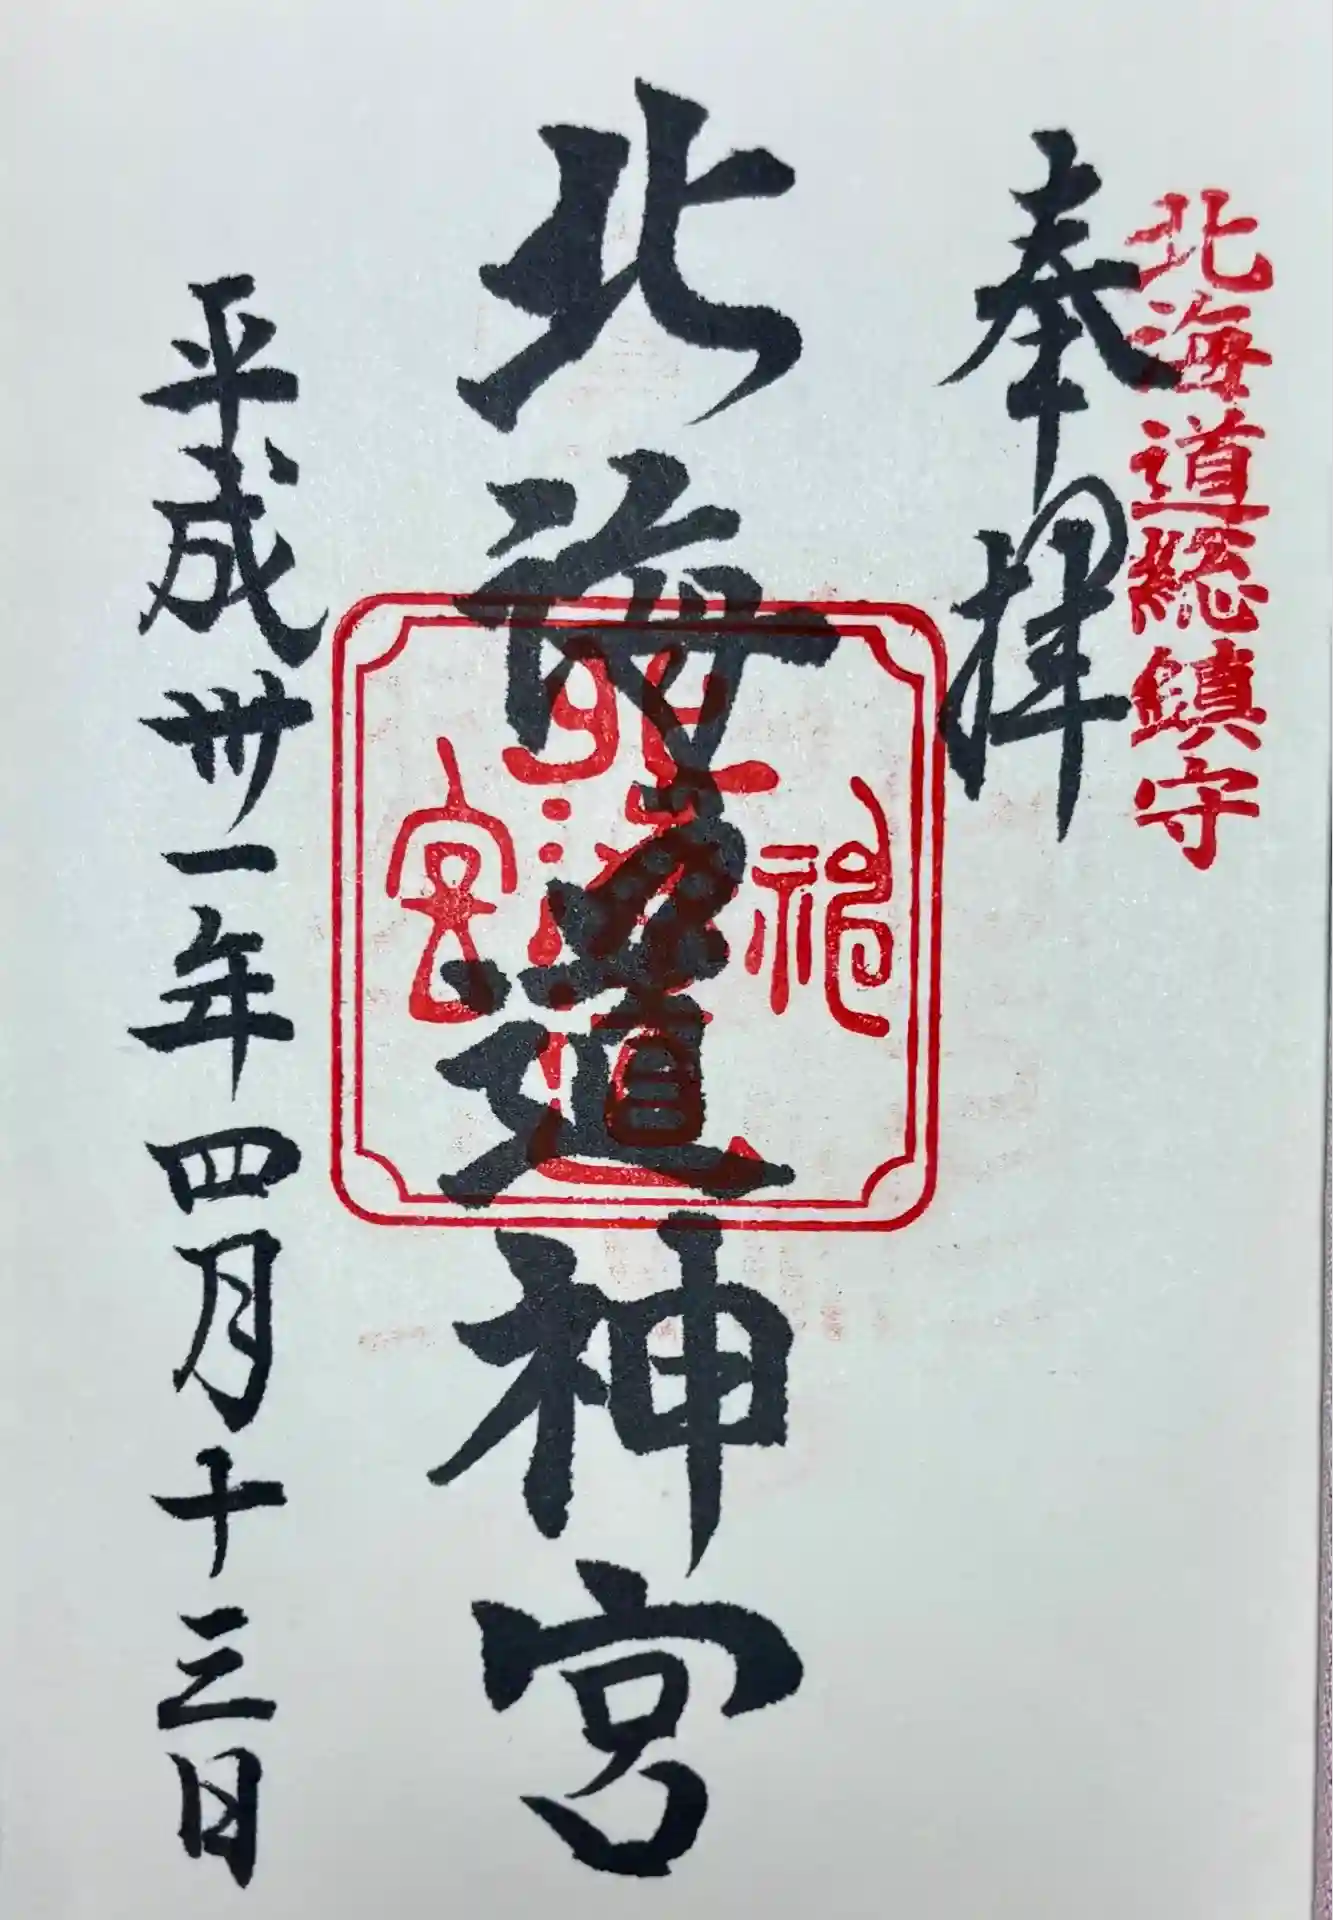 北海道総鎮守
奉拝
北海道神宮
北海道神宮
平成卅一年四月十三日